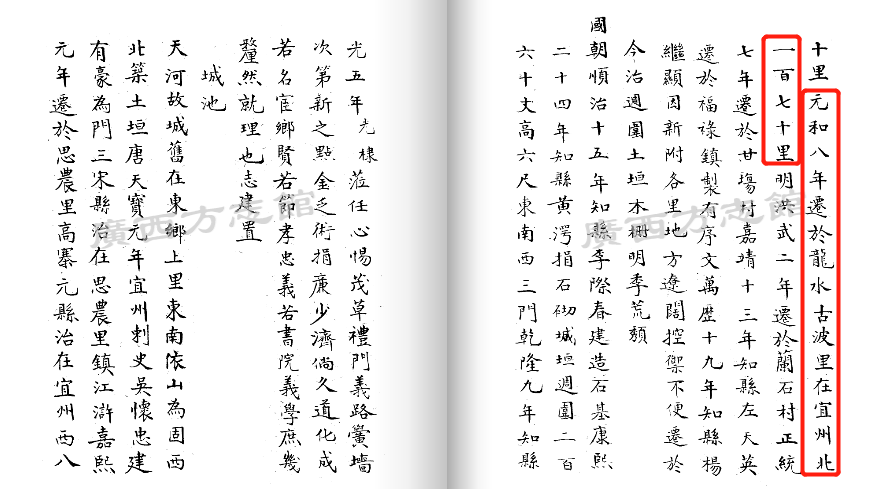 光五年光棣蒞任心惕茂草禮門義路黌墻
次第新之點金乏術捐廉少濟倘久道化成
若名宦鄉賢若節孝忠義若書院義學庶幾
釐然就理也志建置
城池
天河故城舊在東鄉上里東南依山為固西
北築土垣唐天寶元年宜州刺史吳懷忠建
有豪為門三宋縣治在思農里鎮江滸嘉熙
元年遷於思農里高寨元縣治在宜州西八
廣西方志館
十里元和八年遷於龍水古波里在宜州北
一百七十里明洪武二年遷於蘭石村正統
七年遷於甘塲村嘉靖十三年知縣左天英
遷於福祿鎮製有序文萬歷十九年知縣楊
繼顯因新附各里地方遼闊控禦不便遷於
今治週圍土垣木柵明季荒頹
國朝順治十五年知縣李際春建造石基康熙
二十四年知縣黃澐捐石砌城垣週圍二百
六十丈高六尺東南西三門乾隆九年知縣
廣西方志館